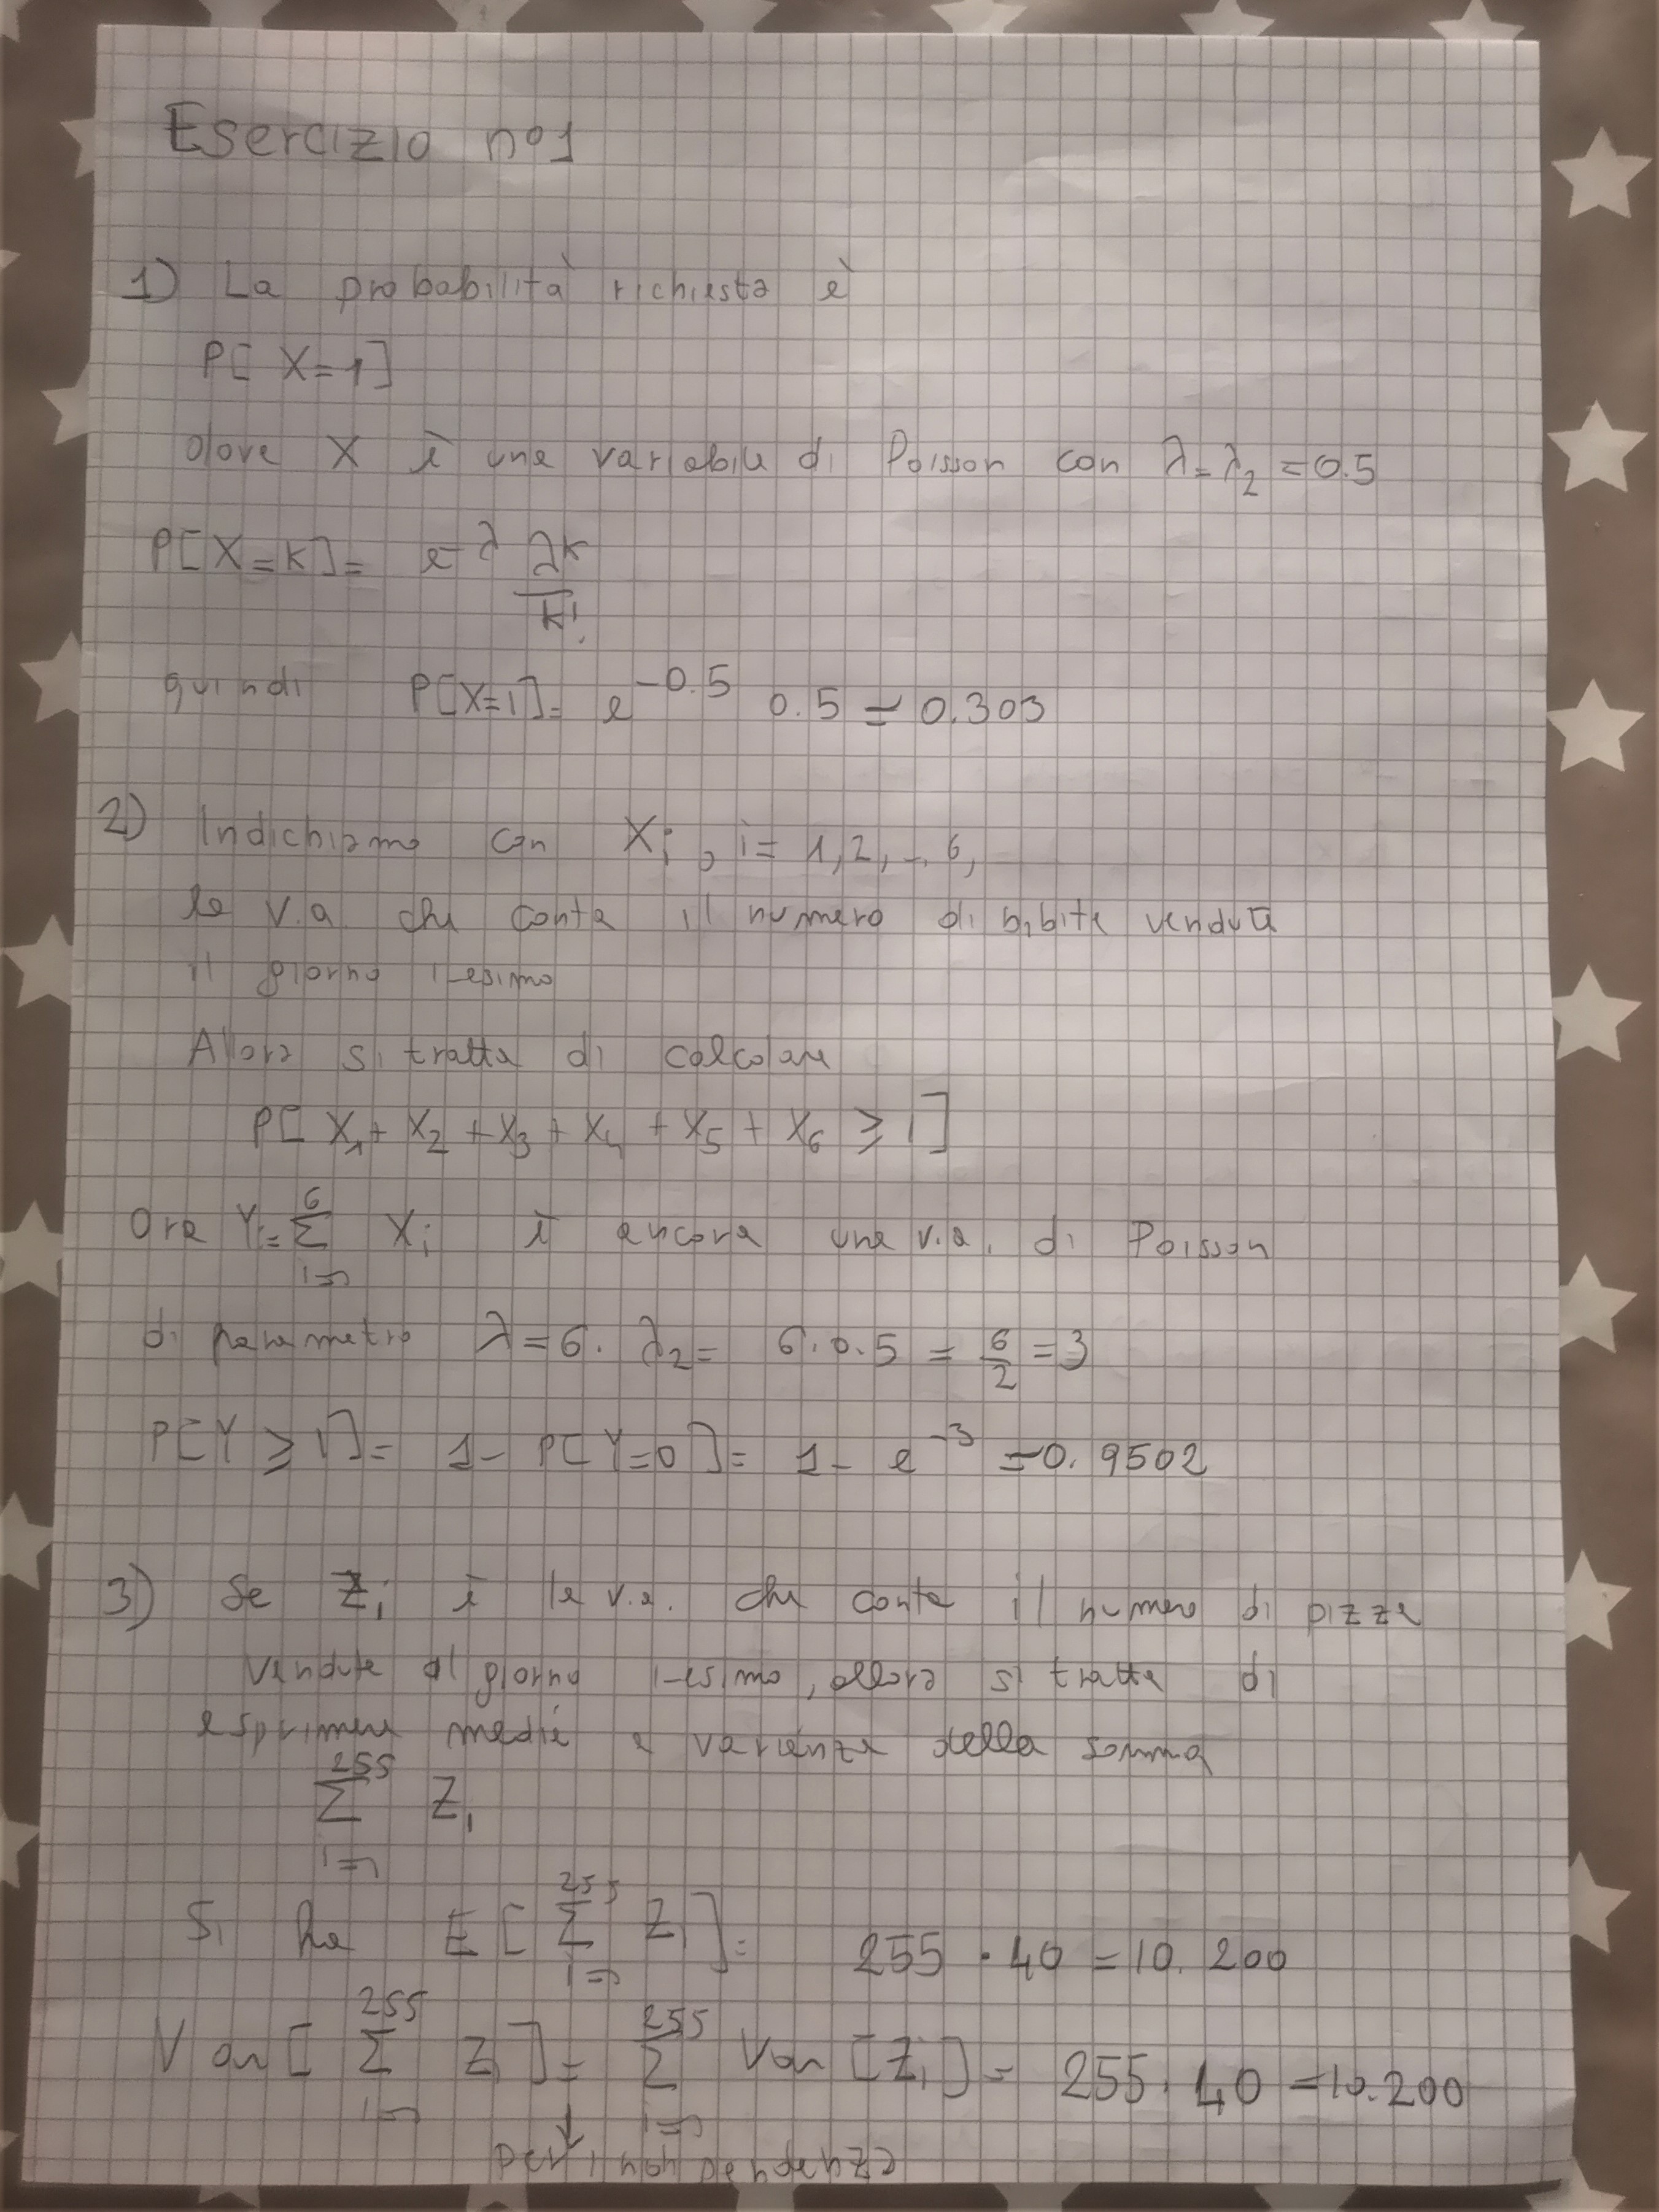 Esercizio n°1
1) La probabilità richiesta è
P[X=1]
dove X è una variabile di Poisson con λ=λ₂=0.5
P[X=k]= e^-λ λ^k/k!
quindi P[X=1]= e^-0.5 0.5 = 0.303
2) Indichiamo con Xi, i=1,2,..6,
la v.a che conta il numero di bibite vendute
il giorno i-esimo
Allora si tratta di calcolare
P[X₁+X₂+X₃+X₄+X₅+X₆ ≥ 1]
Ora Y:=Σ_{i=1}^{6} Xi è ancora una v.a. di Poisson
di parametro λ=6·λ₂= 6·0.5 = 6/2 = 3
P[Y ≥ 1]= 1- P[Y=0]= 1- e^-3 = 0.9502
3) Se Zi è la v.a. che conta il numero di pizze
vendute al giorno i-esimo, allora si tratta di
esprimere media e varianza della somma
Σ_{i=1}^{255} Zi
Si ha E[Σ_{i=1}^{255} Zi]= 255·40=10.200
Var[Σ_{i=1}^{255} Zi]= Σ_{i=1}^{255} Var[Zi]= 255·40=10.200
↓
per indipendenza